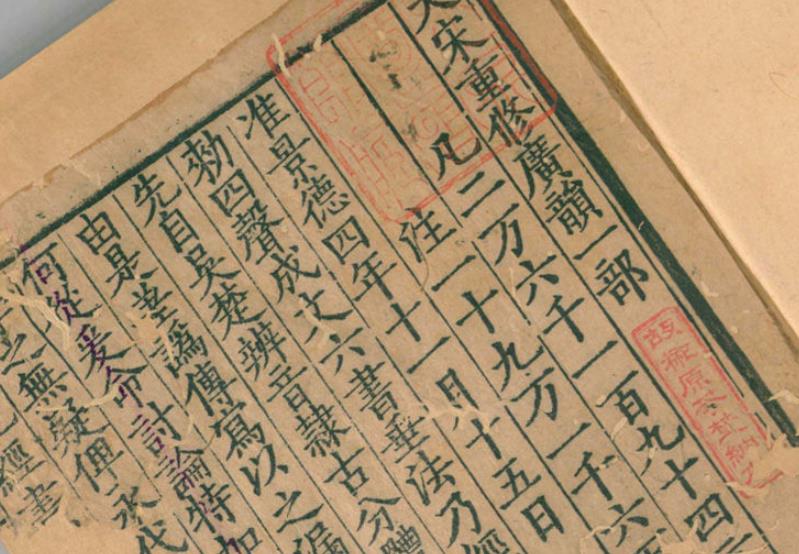 大宋重修廣韻一部
凡二万六千一百九十四
注一十九万一千六
准景德四年十一月十五日
勑四聲成文六書垂法乃經
先自吳楚辨音隷古分體
由是差譌傳寫以之漏
何從爰命討論特加
之無疑俾永代
經書